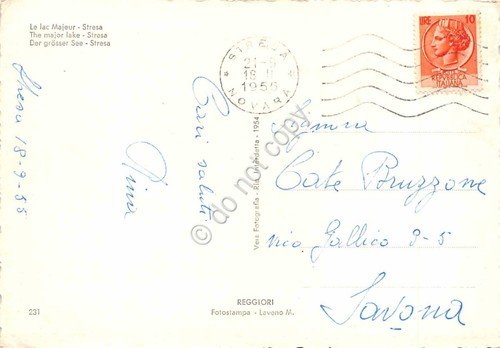 Le lac Majeur - Stresa
The major lake - Stresa
Der grösser See - Stresa
STRESA
NOVARA
1955
LIRE 10
Stresa 18-9-55
Cari saluti
Pina
Vera Fotografia - Rip. Interdetta - 1954
do not copy
Cate Bruzzone
vico Gallico 3-5
Savona
231
REGGIORI
Fotostampa - Laveno M.